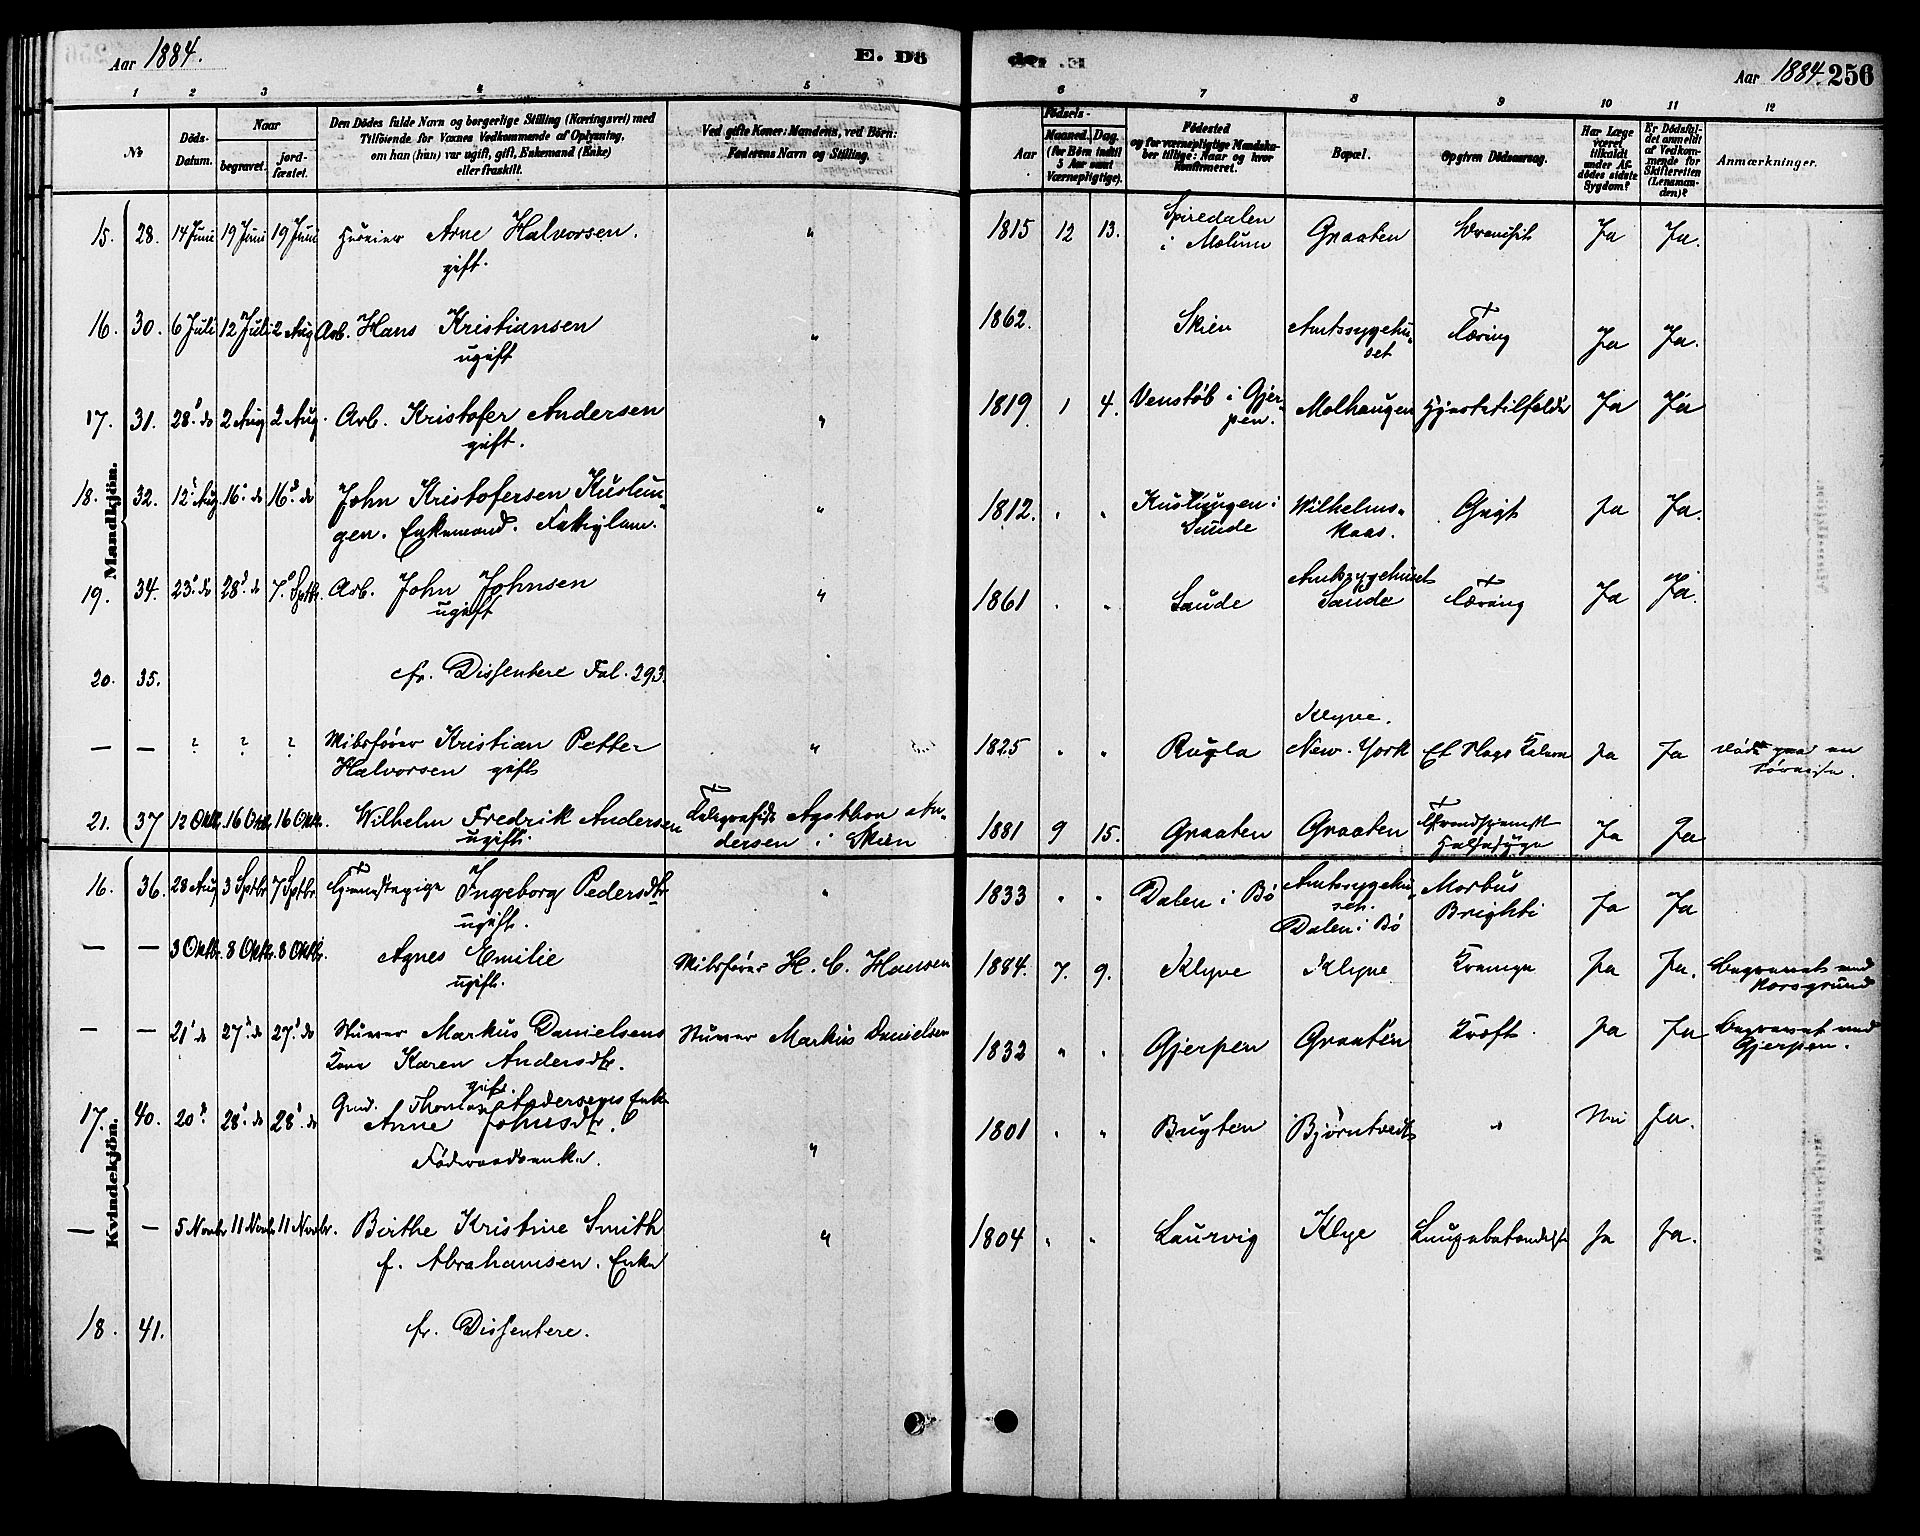 Aar 1884.
E. Dö
de.
Aar 1884. 256
1 2 3 4 5
6 7 8 9 10 11 12
No
Döds-Datum.
Naar
begravet.
jord-fæstet.
Den Dødes fulde Navn og borgerlige Stilling (Næringsvei) med
Tilföiende for Voxnes Vedkommende af Oplysning,
om han (hun) var ugift, gift, Enkemand (Enke)
eller fraskilt.
Ved gifte Koner: Mandens, ved Börn:
Faderens Navn og Stilling.
Födsels-
Aar
Maaned. Dag.
(for Börn indtil
5 Aar samt
Værnepligtige).
Födested
og for værnepligtige Mandska-
ber tillige: Naar og hvor
konfirmeret.
Bopæl.
Opgiven Dödsaarsag.
Har Læge
været
tilkaldt
under Af-
dödes sidste
Sygdom?
Er Dödsfal-
det anmeldt
af Vedkom-
mende for
Skifteretten
(Lensman-
den)?
Anmærkninger.
Mandkjön.
15. 28. 14 Juni 19 Juni 19 Juni Arne Halvorsen. " 1815 12 13. i Melum Graaten Ja Ja.
gift.
16. 30. 6 Juli 12 Juli 2 Aug Arb. Hans Kristiansen " 1862. Skien Amtssygehu-
set Tæring Ja Ja.
ugift
17. 31. 28. do 2 Aug 2 Aug. Arb. Kristofer Andersen " 1819 1 4. Venstöb i Gjer-
pen. Molhaugen Hjertetilfælde Ja Ja
gift.
18. 32. 12. Aug 16. do 16. do John Kristofersen Kuslun-
gen. Enkemand. Fattiglem. " 1812. " " Kuslungen i
Saude Wilhelms-
kaas. Gigt Ja Ja.
19. 34. 23. do 28. do 7. Sptbr. Arb. John Johnsen " 1861 " " Saude Amtssygehuset
Saude Tæring Ja Ja.
ugift
20. 35. cfr. Dissentere Fol. 293.
— — ? ? ? Kristian Petter
Halvorsen gift " 1825 " " Rugla Klyve.
New-York Ja Ja
21. 37 12 Oktb. 16 Oktb. 16 Oktb. Wilhelm Fredrik Andersen
ugift. Telegrafist Agathon An-
dersen i Skien 1881 9 15. Graaten Graaten
Halssyge Ja Ja
Kvindekjön.
16. 36. 28 Aug 3 Sptbr. 7 Sptbr. Ingeborg Pedersdtr
ugift. " 1833 " " Dalen i Bö Amtssygehu-
set.
Dalen i Bö Morbus
Brighti Ja Ja
— — 3 Oktbr. 8 Oktb. 8 Oktbr. Agnes Emilie
ugift. H. C. Hansen 1884. 7. 9. Klyve Klyve Krampe Ja Ja. Begravet ved
Porsgrund
— — 21. do 27. do 27. do Stuver Markus Danielsens
Kone Karen Andersdtr.
gift. Stuver Markus Danielsen 1832 " " Gjerpen Graaten Kræft Ja Ja Begravet ved
Gjerpen.
17. 40. 20. 28. do 28. do Thomas Andersens Enke
Anne Johnsdtr.
Föderaadsenke. " 1801 " " Bugten Björntvedt " Nei Ja.
— — 5 Novbr 11 Novbr 11 Novbr. Birthe Kristine Smith
f. Abrahamsen. Enke " 1804 " " Laurvig Klyve Lungebetændelse Ja Ja.
18. 41. cfr. Dissentere.